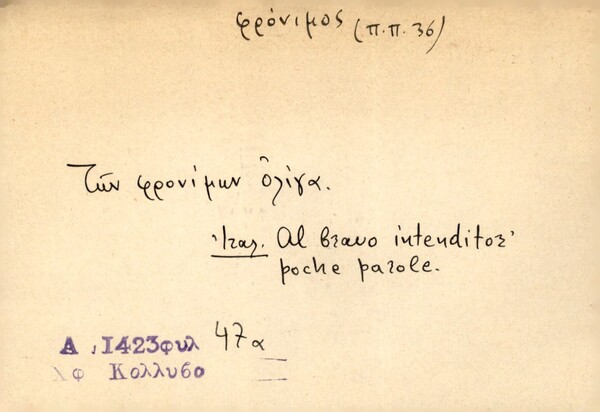 φρόνιμος (π.π. 36)
Τῶν φρονίμων ὀλίγα.
Ἰταλ. Al bravo intenditor'
poche parole.
Α , 1423 φυλ 47α
φ Κολλυβο